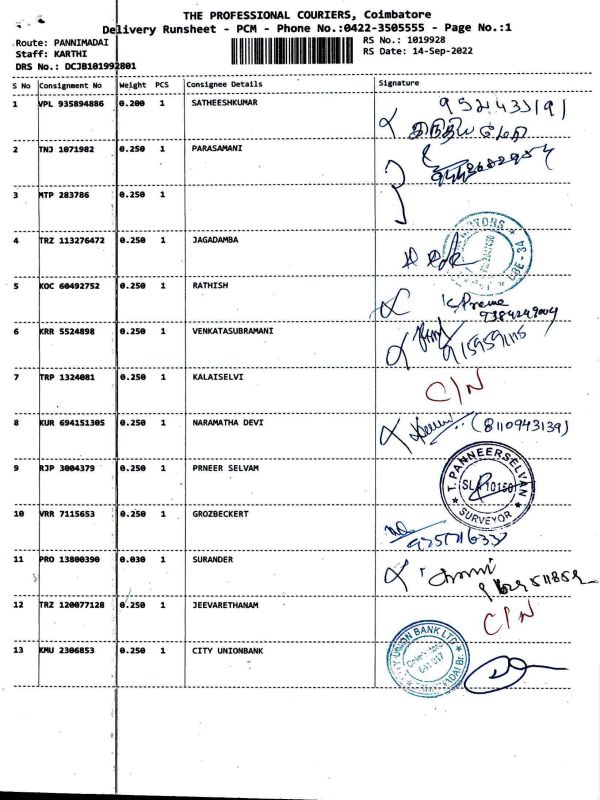 THE PROFESSIONAL COURIERS, Coimbatore
Delivery Runsheet - PCM - Phone No.:0422-3505555 - Page No.:1
Route: PANNIMADAI
RS No.: 1019928
Staff: KARTHI
RS Date: 14-Sep-2022
DRS No.: DCJB101992801
S No Consignment No Weight PCS Consignee Details Signature
1 VPL 935894886 0.200 1 SATHEESHKUMAR
2 TNJ 1071982 0.250 1 PARASAMANI
3 MTP 283786 0.250 1
4 TRZ 113276472 0.250 1 JAGADAMBA
MOTORS CBE - 34
5 KOC 60492752 0.250 1 RATHISH
9384249004
6 KRR 5524898 0.250 1 VENKATASUBRAMANI
7 TRP 1324081 0.250 1 KALAISELVI
C/N
8 KUR 694151305 0.250 1 NARAMATHA DEVI
(8110943139)
9 RJP 3004379 0.250 1 PRNEER SELVAM
T. PANNEERSELVAN
SURVEYOR
10 VRR 7115653 0.250 1 GROZBECKERT
11 PRO 13800390 0.030 1 SURANDER
12 TRZ 120077128 0.250 1 JEEVARETHANAM
C/N
13 KMU 2306853 0.250 1 CITY UNIONBANK
UNION BANK LTD